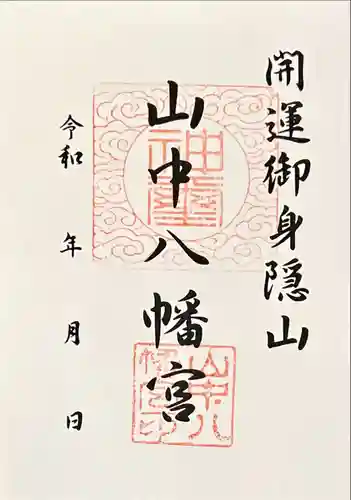 開運御身隠山
山中八幡宮
令和 年 月 日